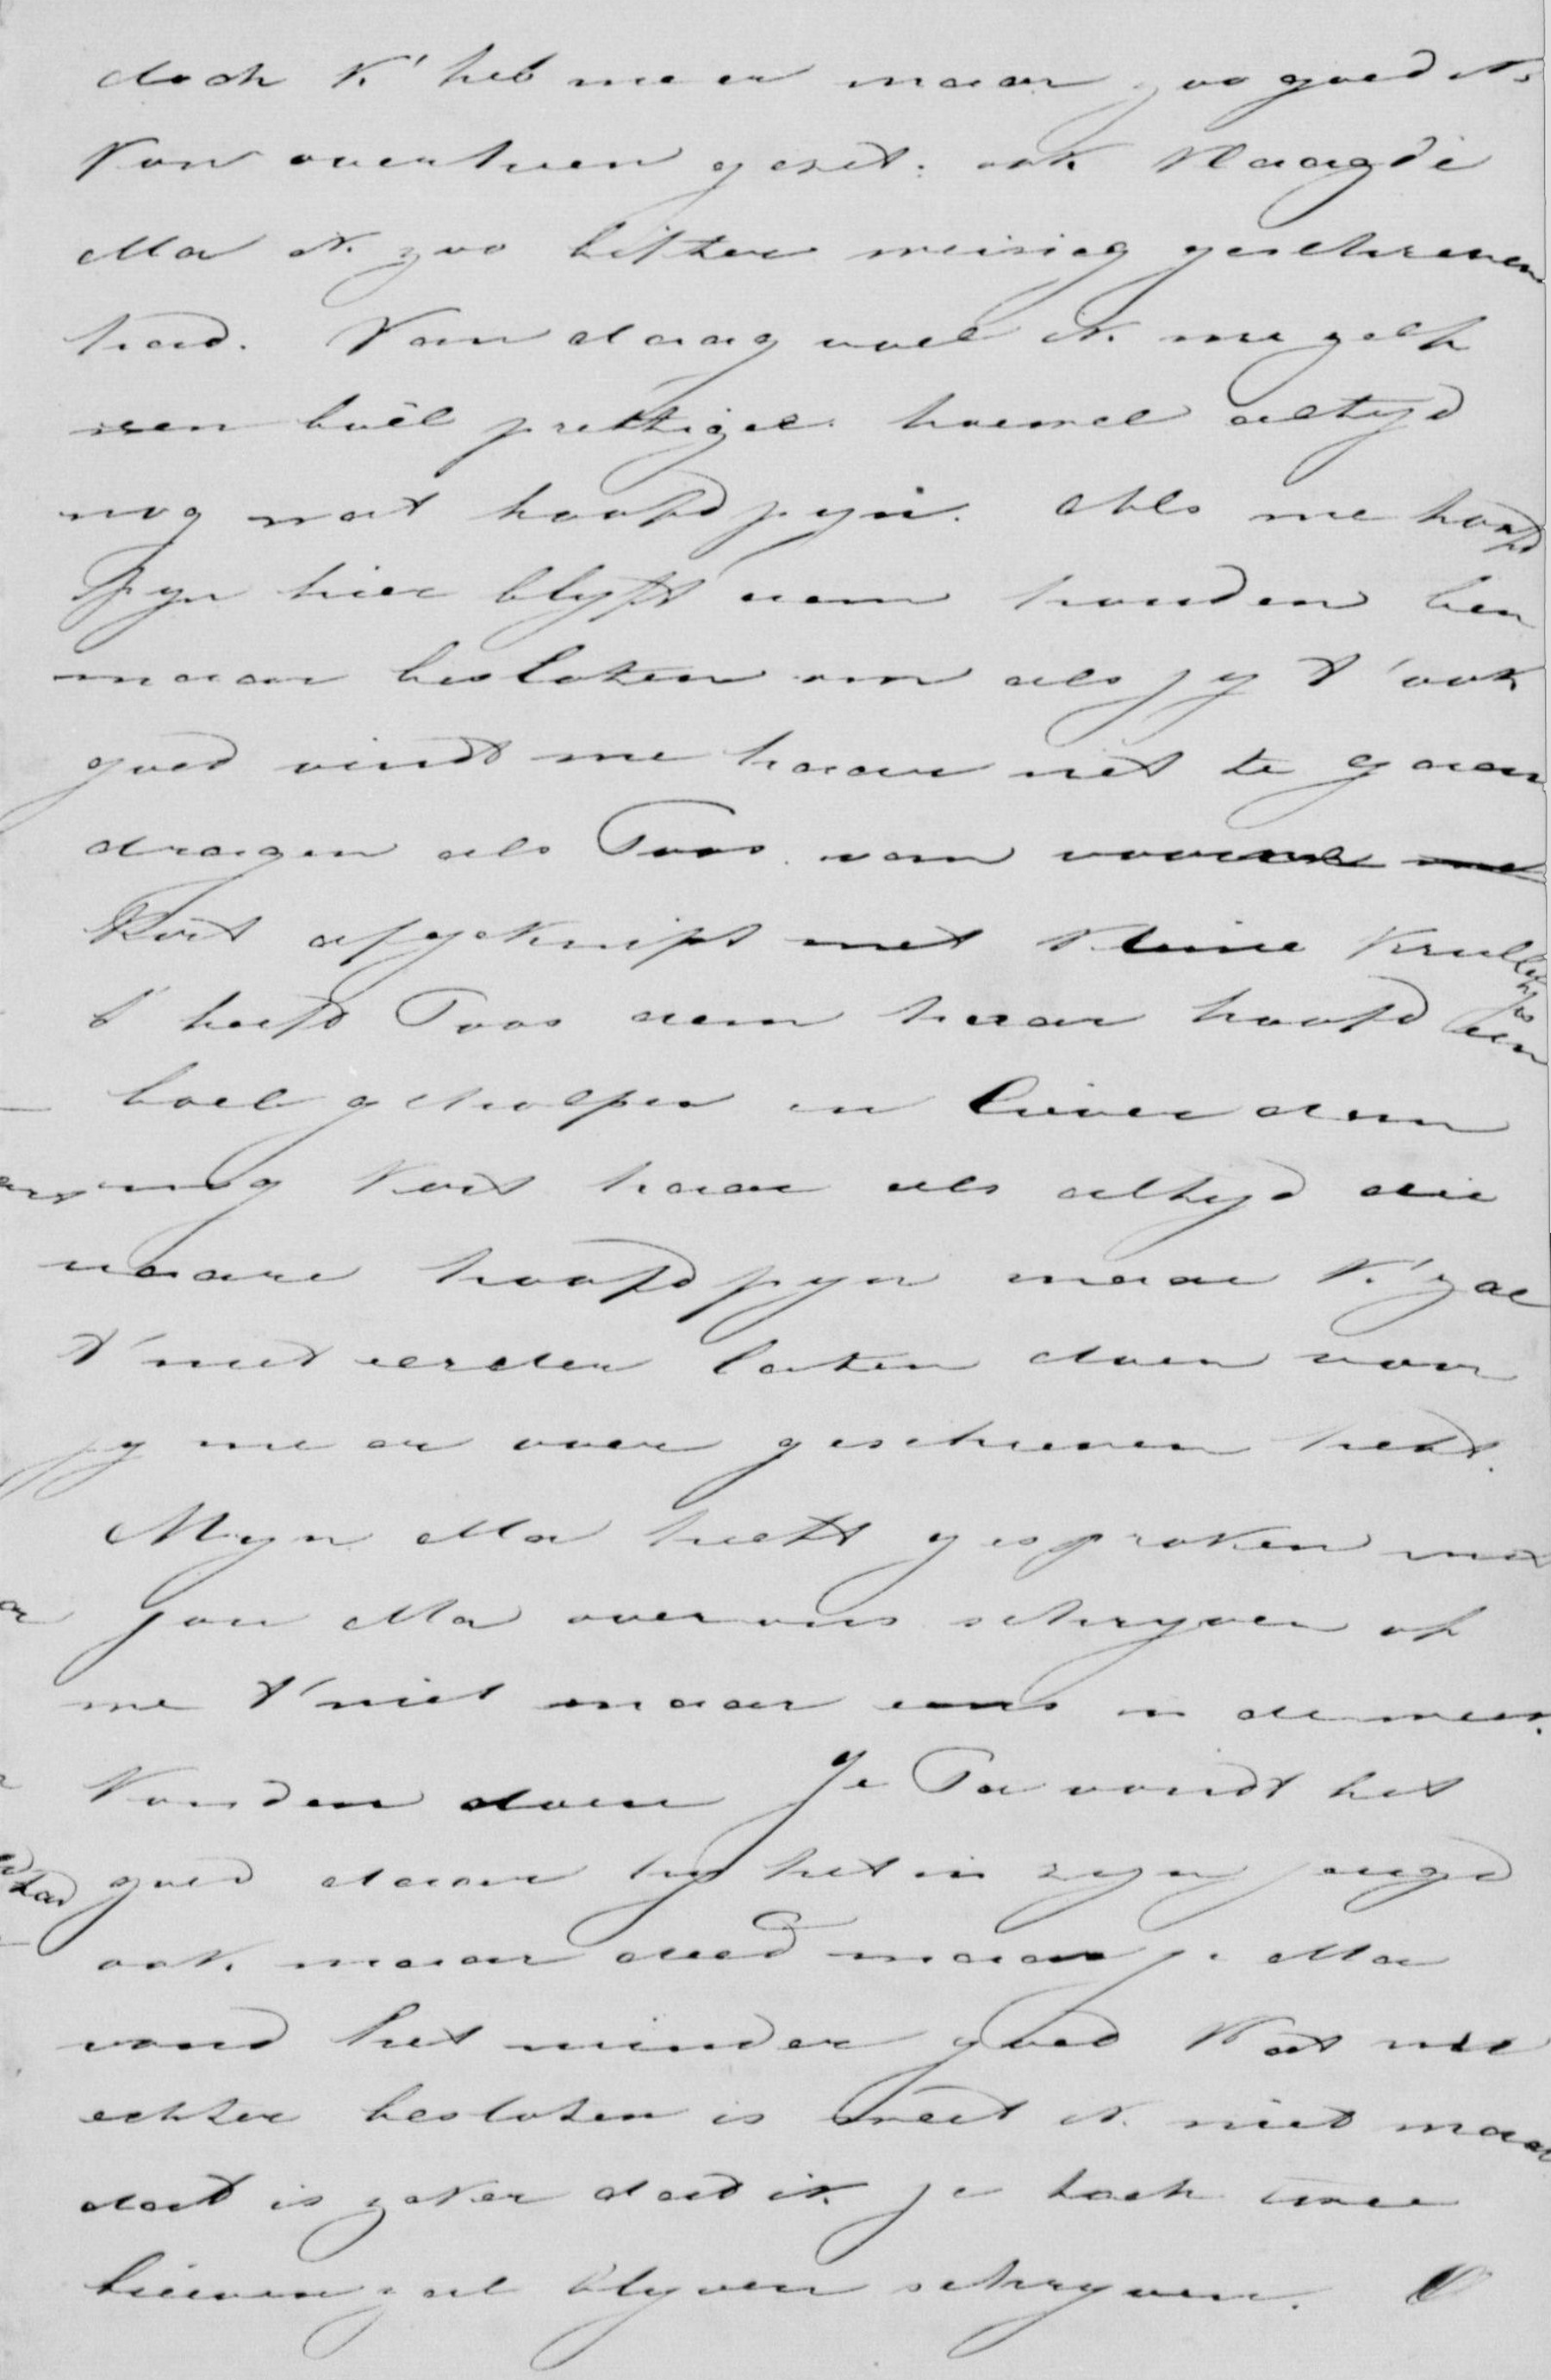 doch k' heb me er maar zoo goed ik
kon overheen gezet. ook klaagde
Ma ik zoo bitter weinig geschreven
had. Van daag voel ik me zelf
een boel prettiger hoewel altyd
nog wat hoofdpyn. Als me hoofd
pyn hier blyft aan houden ben
maar besloten om als jy t' ook
goed vindt me haar net te gaan
dragen als Toos van voor
kort afgeknipt met kleine krulletjes
t' heeft Toos aan haar hoofd een
boel geholpen en liever dan
nog kort haar als altyd die
naare hoofdpyn maar k' zal
t' niet eerder laten doen voor
jy me er over geschreven hebt.
Myn Ma heeft gesproken met
jou Ma over ons schryven of
we t' niet maar eens in de week
konden doen Je Pa vondt het
goed daar hy het in zyn jeugd
ook maar deed maar je Ma
vond het minder goed Wat nu
echter besloten is weet ik niet maar
dat is zeker dat ik je toch twee
brieven zal blyven schryven. O